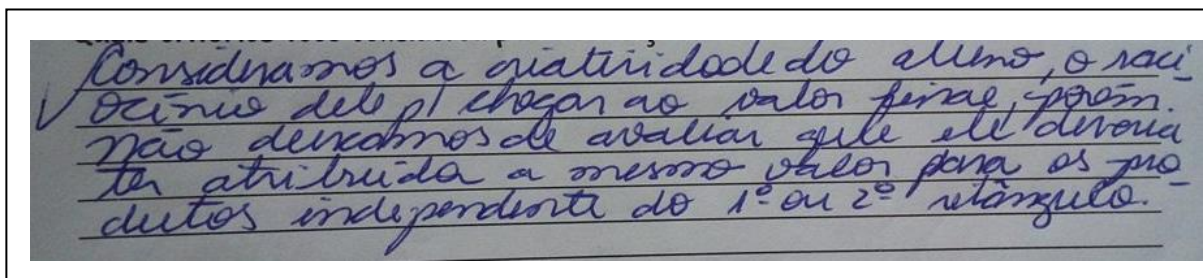 Consideramos a criatividade do aluno, o raci-
ocínio dele p/ chegar ao valor final, porém
não deixamos de avaliar que ele deveria
ter atribuído o mesmo valor para os pro-
dutos independente do 1º ou 2º retângulo.